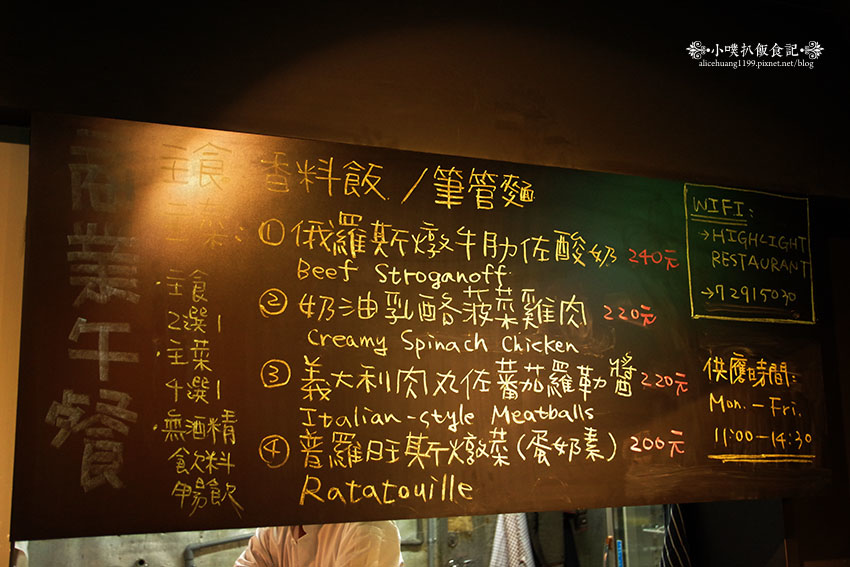 小噗扒飯食記
alicehuang1199.pixnet.net/blog
商業午餐
主食 香料飯 / 筆管麵
主菜:
① 俄羅斯燉牛肋佐酸奶 240元
Beef Stroganoff
② 奶油乳酪菠菜雞肉 220元
Creamy Spinach Chicken
③ 義大利肉丸佐蕃茄羅勒醬 220元
Italian-style Meatballs
④ 普羅旺斯燉菜(蛋奶素) 200元
Ratatouille
·主食
2選1
·主菜
4選1
·無酒精
飲料
暢飲
WIFI:
→HIGHLIGHT
RESTAURANT
→72915030
供應時間:
Mon.-Fri.
11:00-14:30